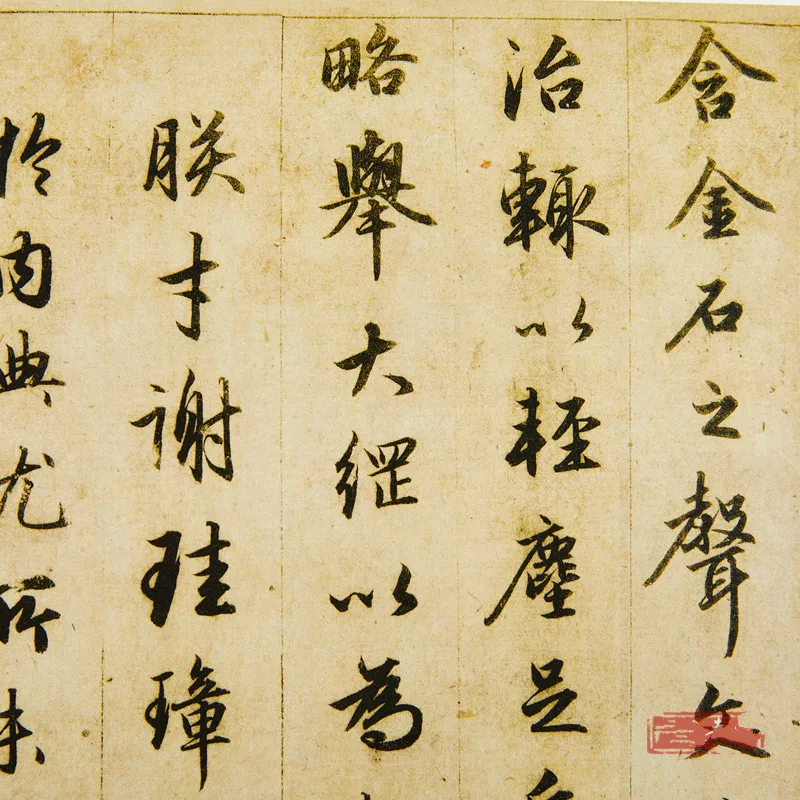 含金石之聲文
治輙以輕塵足
略舉大綱以為
朕才謝珪璋
於內典尤所未